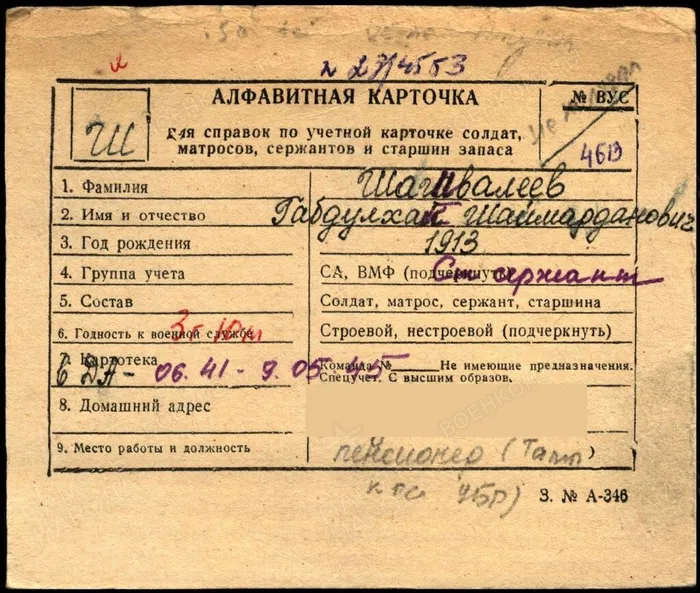 № 23/4553
АЛФАВИТНАЯ КАРТОЧКА
№ ВУС
Ш
для справок по учетной карточке солдат,
матросов, сержантов и старшин запаса
46В
1. Фамилия Шагивалеев
2. Имя и отчество Габдулхай Шаймарданович
3. Год рождения 1913
4. Группа учета СА, ВМФ (подчеркнуть) Ст сержант
5. Состав Солдат, матрос, сержант, старшина
6. Годность к военной службе Строевой, нестроевой (подчеркнуть)
7. Картотека Команда № Не имеющие предназначения.
ДА - 06.41 - 9.05.45 Спецучет. С высшим образов.
8. Домашний адрес
9. Место работы и должность пенсионер (
УБР)
З. № А-346